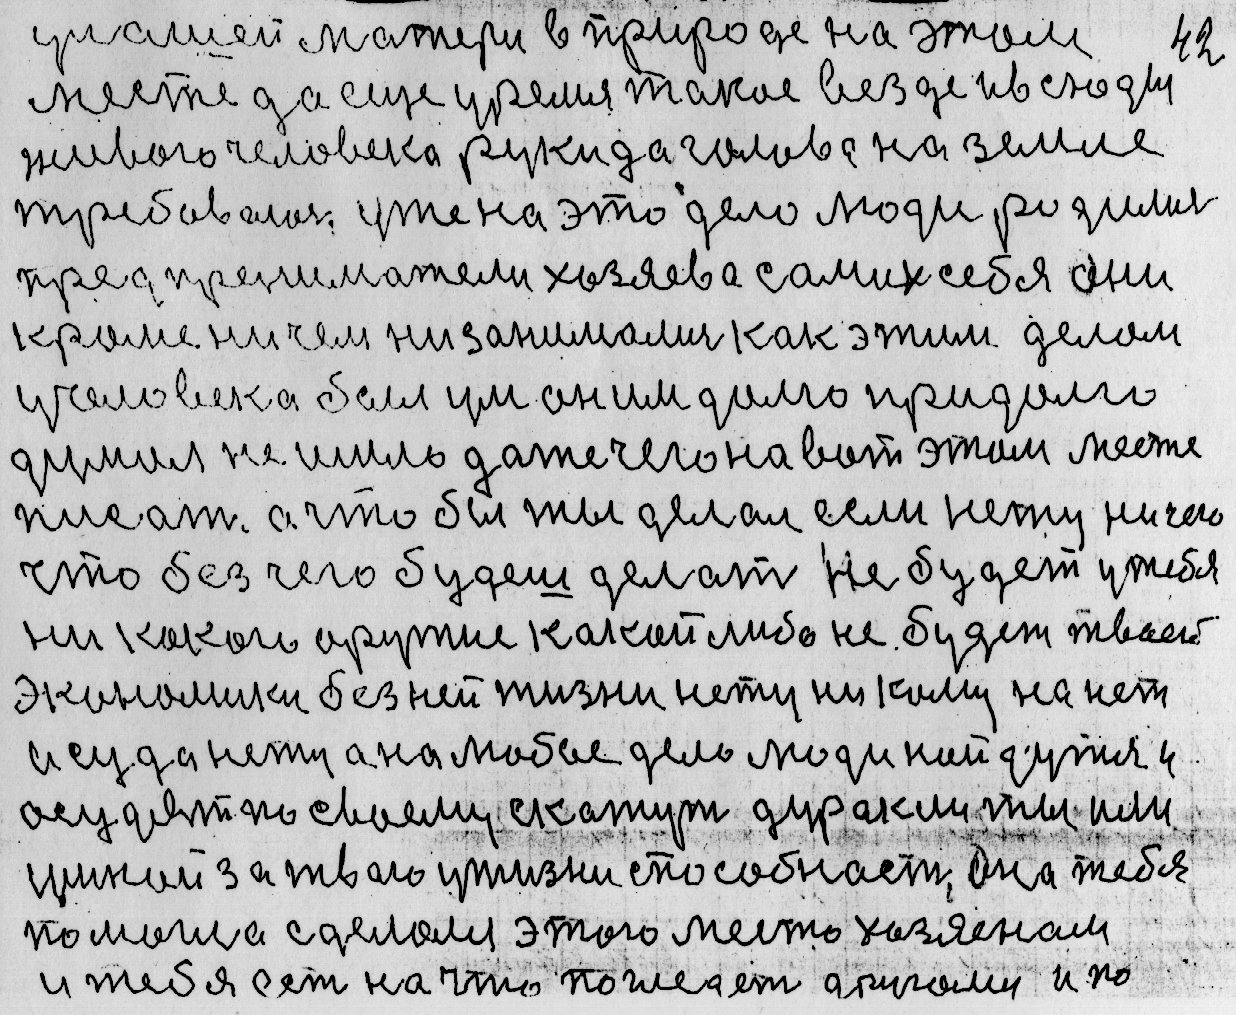 у нашей матери в природе на этом 42
месте да еще уремя такое везде ивсюды
живого человека руки да голова на земле
требовалая. уже на это дело люди родилия
предприниматели хозяева самих себя они
кроме ничем низанималия как этим делом
учеловека был ум оним долго придолго
думал не шиль даже чегонавот этом месте
писат. а что бы ты делал если нету ничего
что без чего будеш делат Не будет утебя
ни кокого оружие какой либо не будет твоей
экономики без ней жизни нету ни кому на нет
и суда нету а на любое дело люди найдутия и
осудят по своему скажут дуракли ты или
умной за твою ужизни способност, Она тебя
помогла сделали этого место хозяенам
и тебя ест на что погледет другому и по